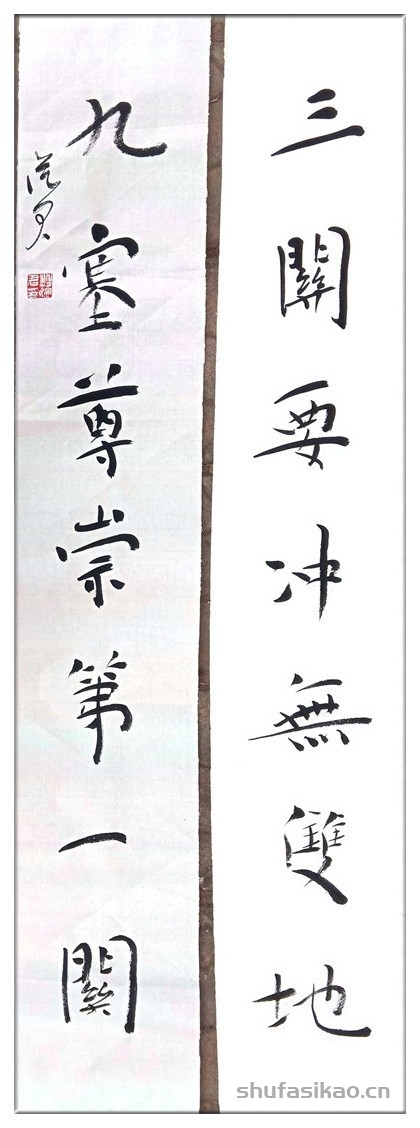 三關要冲無雙地
九塞尊崇第一關
shufasikao.cn